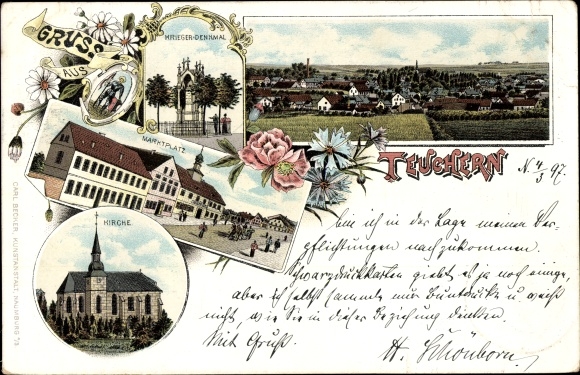 GRUSS
AUS
KRIEGER-DENKMAL
MARKTPLATZ
KIRCHE
TEUCHERN
N. 4/3 97.
bin ich in der Lage meinen Ver-
pflichtungen nachzukommen.
Schwarzdruckkarten giebt es ja noch einige,
aber ich selbst sammle nur Buntdrucke u. weiß
nicht, wie Sie in dieser Beziehung denken.
Mit Gruß
H. Schönborn.
CARL BECKER KUNSTANSTALT, NAUMBURG a/S